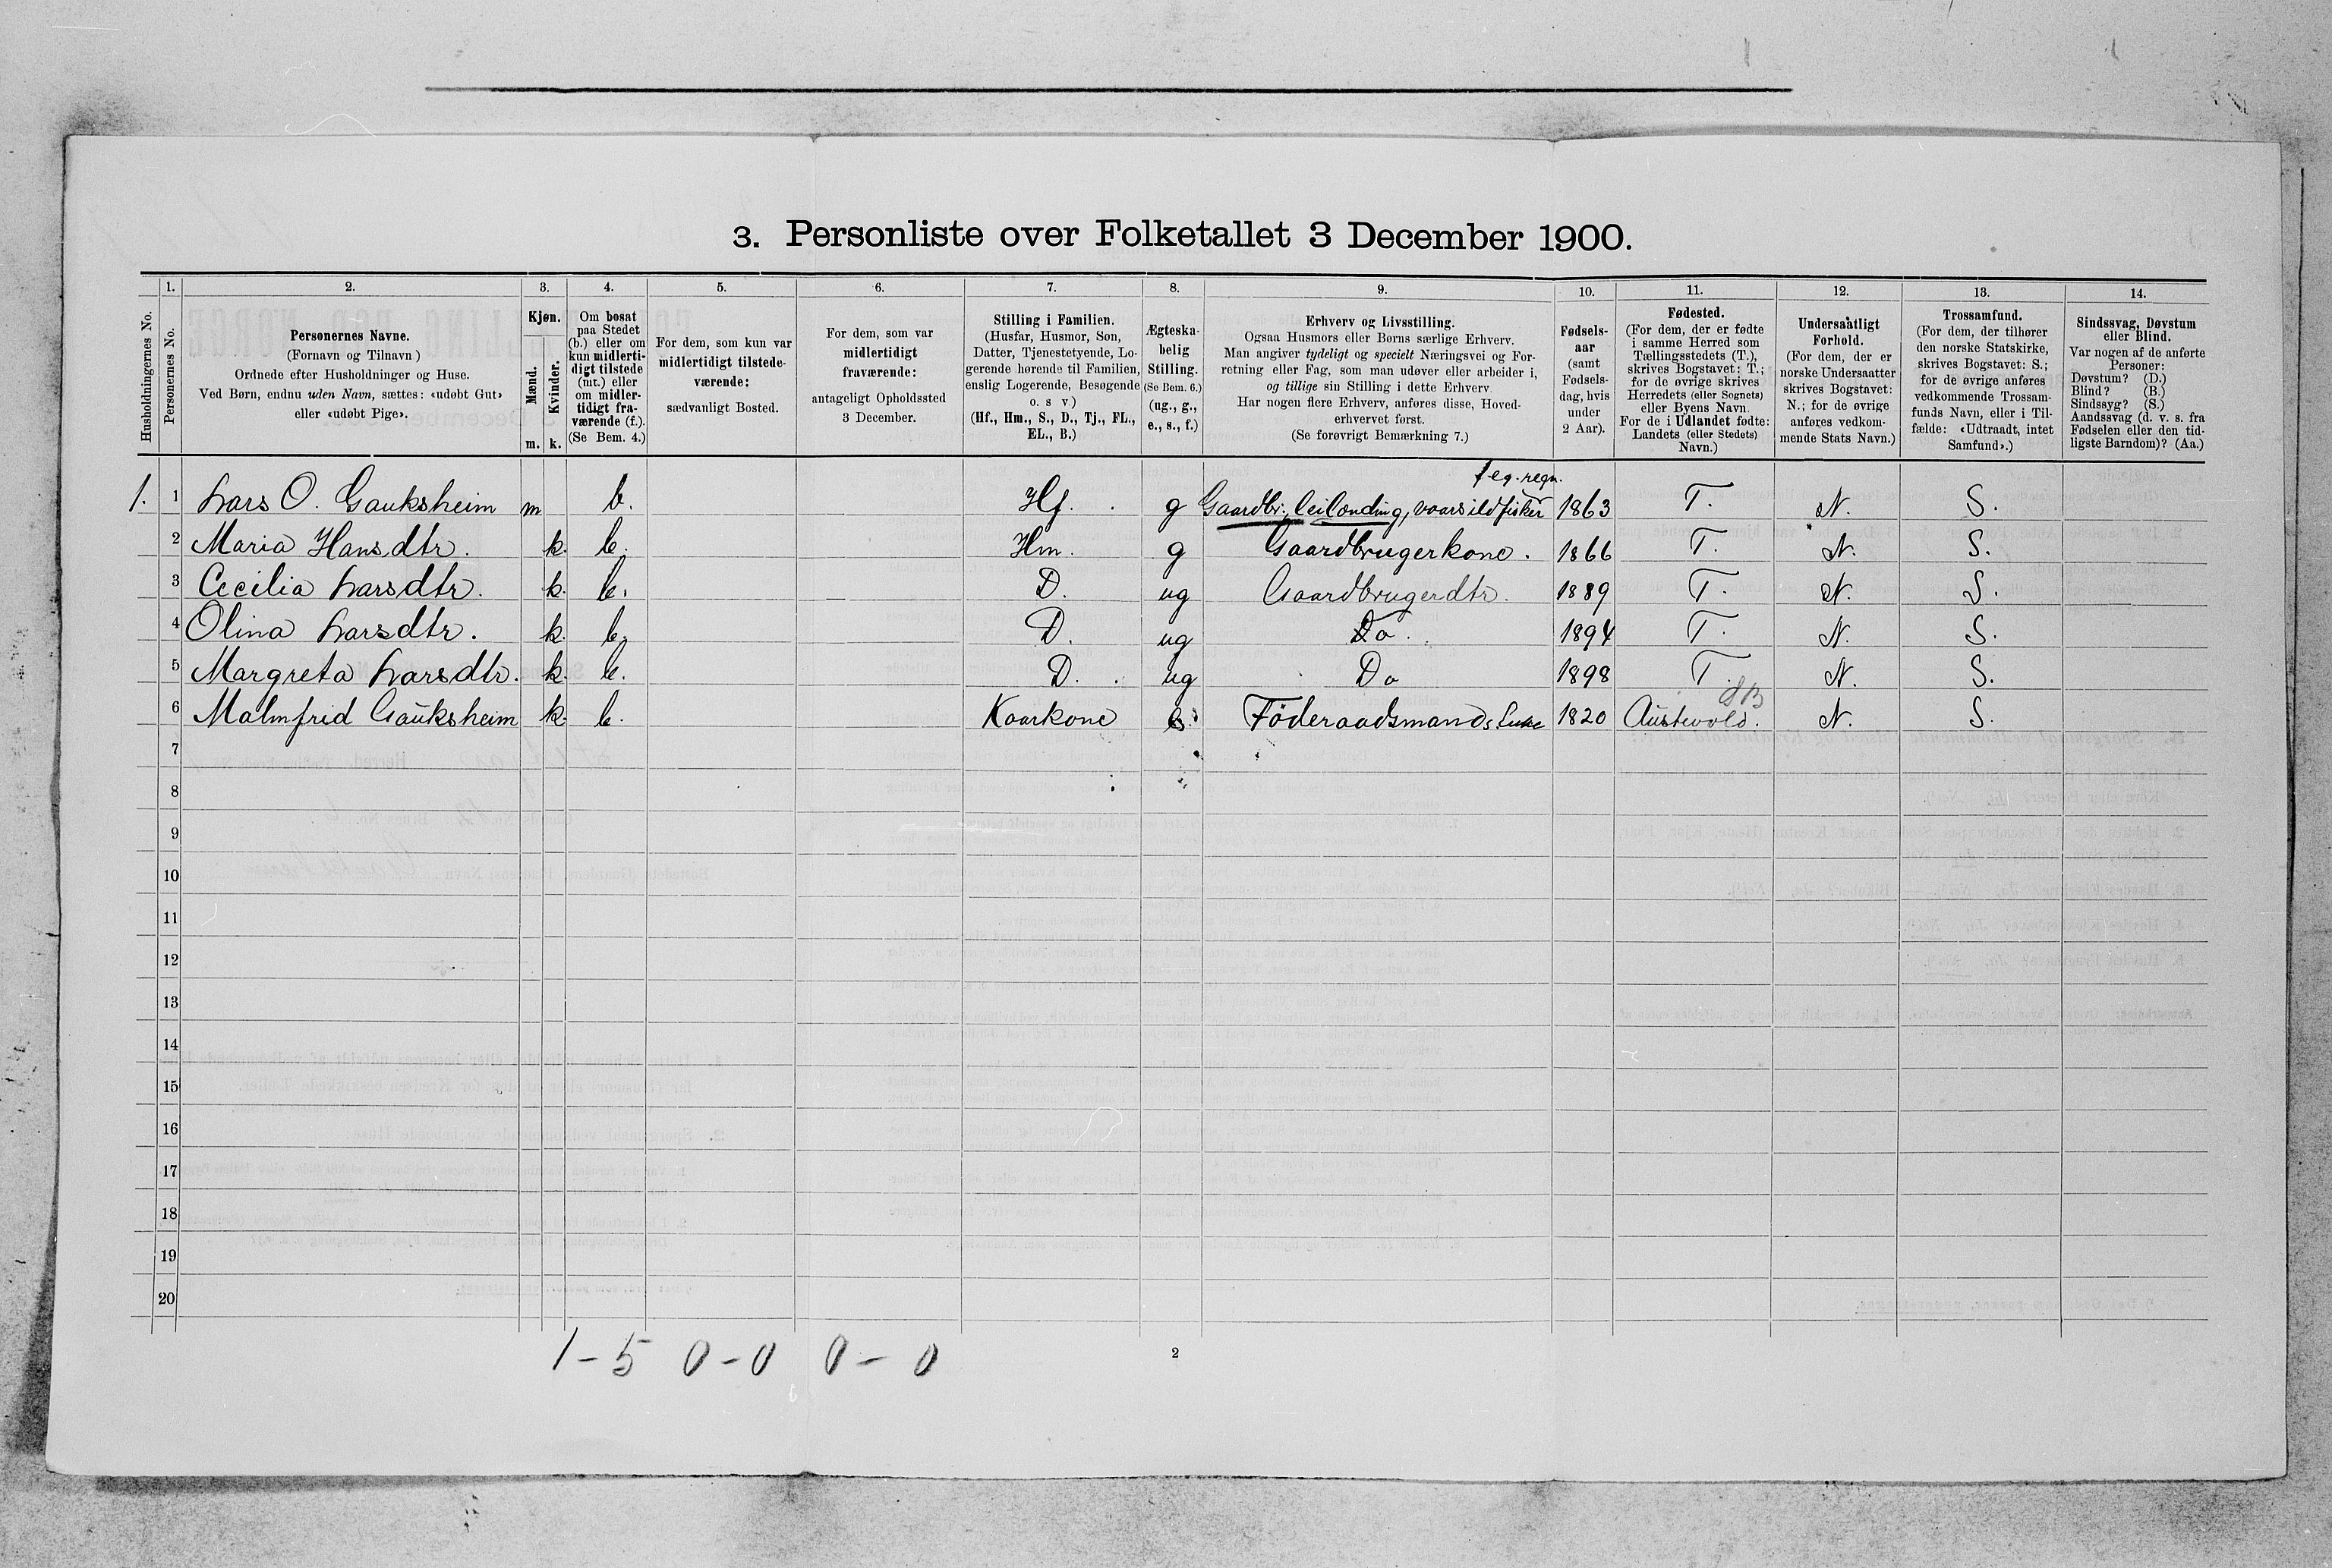 3. Personliste over Folketallet 3 December 1900.
1. 2. 3. 4. 5. 6. 7. 8. 9. 10. 11. 12. 13. 14.
Husholdningernes No.
Personernes No.
Personernes Navne.
(Fornavn og Tilnavn)
Ordnede efter Husholdninger og Huse.
Ved Børn, endnu uden Navn, sættes: «udøbt Gut»
eller «udøbt Pige».
Kjøn.
Mænd.
Kvinder.
m. k.
Om bosat
paa Stedet
(b.) eller om
kun midlerti-
digt tilstede
(mt.) eller
om midler-
tidigt fra-
værende (f.).
(Se Bem. 4.)
For dem, som kun var
midlertidigt tilstede-
værende:
sædvanligt Bosted.
For dem, som var
midlertidigt
fraværende:
antageligt Opholdssted
3 December.
Stilling i Familien.
(Husfar, Husmor, Søn,
Datter, Tjenestetyende, Lo-
gerende hørende til Familien,
enslig Logerende, Besøgende
o. s v.)
(Hf., Hm., S., D., Tj., FL.,
EL., B.)
Ægteska-
belig
Stilling.
(Se Bem. 6.)
(ug., g.,
e., s., f.)
Erhverv og Livsstilling.
Ogsaa Husmors eller Børns særlige Erhverv.
Man angiver tydeligt og specielt Næringsvei og For-
retning eller Fag, som man udøver eller arbeider i,
og tillige sin Stilling i dette Erhverv.
Har nogen flere Erhverv, anføres disse, Hoved-
erhvervet først.
(Se forøvrigt Bemærkning 7.)
Fødsels-
aar
(samt
Fødsels-
dag, hvis
under
2 Aar).
Fødested.
(For dem, der er fødte
i samme Herred som
Tællingsstedets (T.),
skrives Bogstavet: T.;
for de øvrige skrives
Herredets (eller Sognets)
eller Byens Navn.
For de i Udlandet fødte:
Landets (eller Stedets)
Navn.)
Undersaatligt
Forhold.
(For dem, der er
norske Undersaatter
skrives Bogstavet:
N.; for de øvrige
anføres vedkom-
mende Stats Navn.)
Trossamfund.
(For dem, der tilhører
den norske Statskirke,
skrives Bogstavet: S.;
for de øvrige anføres
vedkommende Trossam-
funds Navn, eller i Til-
fælde: «Udtraadt, intet
Samfund».)
Sindssvag, Døvstum
eller Blind.
Var nogen af de anførte
Personer:
Døvstum? (D.)
Blind? (B.)
Sindssyg? (S.)
Aandssvag (d. v. s. fra
Fødselen eller den tid-
ligste Barndom)? (Aa.)
f eg. regn.
1. 1 Lars O. Gauksheim m b. Hf. g Gaardbr., leilending, vaarsildfisker 1863 T. N. S.
2 Maria Hansdtr. k. b. Hm. g Gaardbrugerkone. 1866 T. N. S.
3 Cecilia Larsdtr. k. b. D. ug Gaardbrugerdtr. 1889 T. N. S.
4 Olina Larsdtr. k. b. D. ug Do. 1894 T. N. S.
5 Margreta Larsdtr. k. b. D. ug Do 1898 T. N. S.
SB
6 Malmfrid Gauksheim k. b. Kaarkone e. Föderaadsmands Enke 1820 Austevold. N. S.
7
8
9
10
11
12
13
14
15
16
17
18
19
20
1 - 5 0 - 0 0 - 0
2